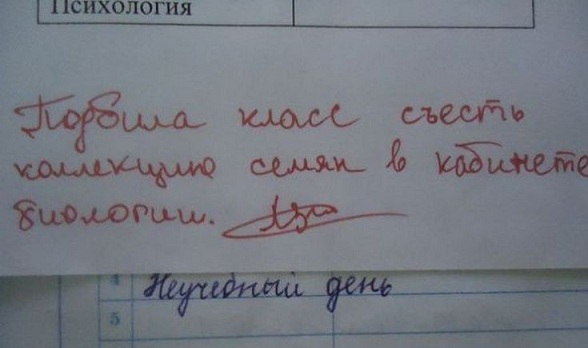 Психология
Подбила класс съесть
коллекцию семян в кабинете
биологии.
4 Неучебный день
5